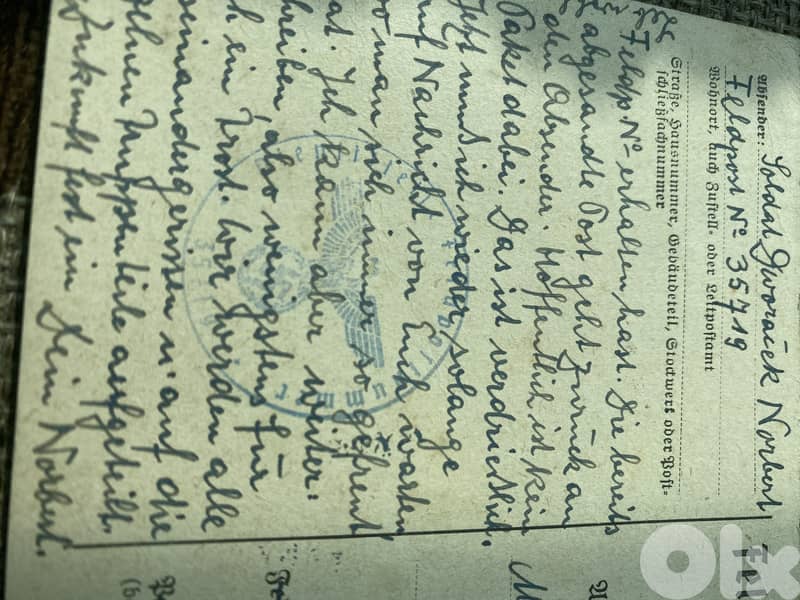 Absender: Soldat Dworaček Norbert
Feldpost No 35719
Wohnort, auch Zustell- oder Leitpostamt
Straße, Hausnummer, Gebäudeteil, Stockwerk oder Post-
schließfachnummer
Feldp No erhalten hast. Die bereits
abgesandte Post geht zurück an
den Absender. Hoffentlich ist kein
Paket dabei. Das ist verdrießlich.
Jetzt muß ich wieder solange
auf Nachricht von Euch warten
wo man sich immer so gefreut
hat. Ich kann aber weiter
schreiben, also wenigstens für
ein Trost. Wir werden alle
auseinandergerissen u. auf die
einzelnen Truppenteile aufgeteilt.
Zukunft fest ein Dein Norbert.
Fel
OLX